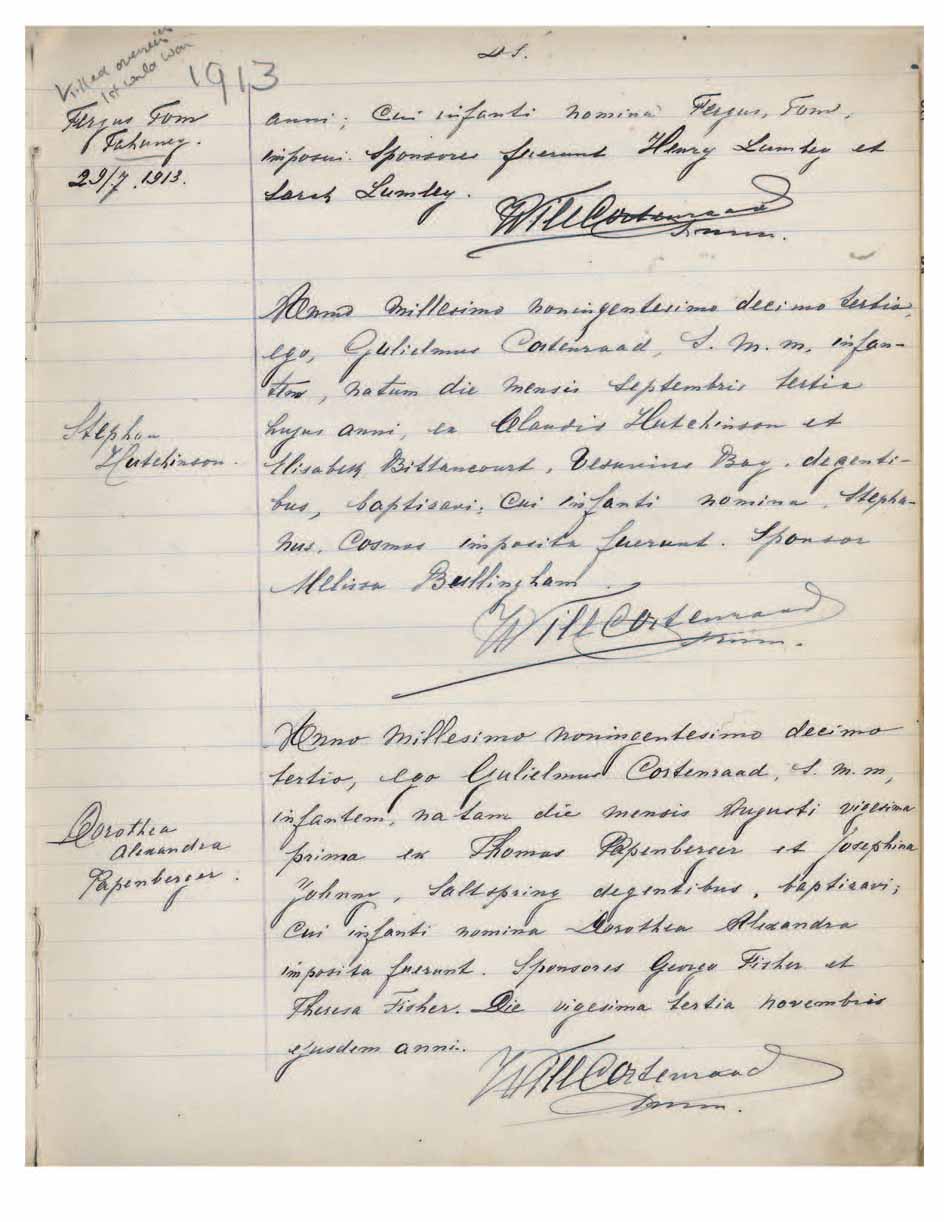 Killed overseas
1st world war
1913
Fergus Tom
Tahuney.
29/7.1913.
anni; cui infanti nomina Fergus, Tom,
imposui. Sponsores fuerunt Henry Lumley et
Sarah Lumley.
Will Cortenraad
Anno millesimo noningentesimo decimo tertio,
ego, Gulielmus Cortenraad, S. M. m, infan-
tem, natum die mensis Septembris tertia
Stephan
Hutchinson.
hujus anni, ex Claudis Hutchinson et
Elisabeth Bittancourt, Vesuvius Bay, degenti-
bus, baptisavi; cui infanti nomina, Stepha-
nus, Cosmos imposita fuerunt. Sponsor
Melissa Bullingham.
Will Cortenraad
Anno millesimo noningentesimo decimo
tertio, ego Gulielmus Cortenraad, S. m. m,
infantem, natam die mensis Augusti vigesima
Dorothea
Alexandra
Papenberger.
prima ex Thomas Papenberger et Josephina
Johnny, Saltspring degentibus, baptisavi;
cui infanti nomina Dorothea Alexandra
imposita fuerunt. Sponsores George Fisher et
Theresa Fisher. Die vigesima tertia novembris
ejusdem anni.
Will Cortenraad